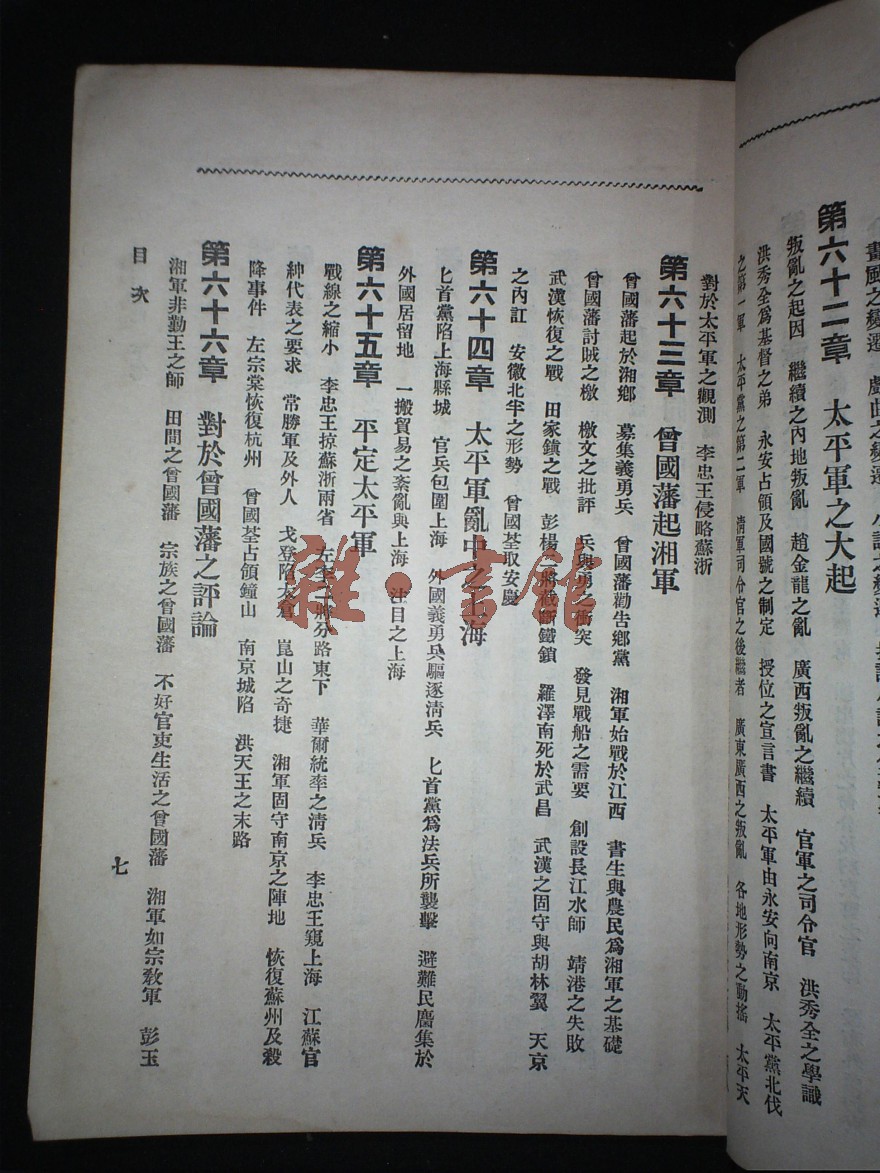 畫風之變遷　戲曲之變遷
第六十二章　太平軍之大起
叛亂之起因　繼續之內地叛亂　趙金龍之亂　廣西叛亂之繼續　官軍之司令官　洪秀全之學識
洪秀全爲基督之弟　永安占領及國號之制定　授位之宣言書　太平軍由永安向南京　太平黨北伐
之第一軍　太平黨之第二軍　淸軍司令官之後繼者　廣東廣西之叛亂　各地形勢之動搖　太平天
對於太平軍之觀測　李忠王侵略蘇浙
第六十三章　曾國藩起湘軍
曾國藩起於湘鄉　募集義勇兵　曾國藩勸告鄉黨　湘軍始戰於江西　書生與農民爲湘軍之基礎
曾國藩討賊之檄　檄文之批評　兵與勇之衝突　發見戰船之需要　創設長江水師　靖港之失敗
武漢恢復之戰　田家鎮之戰　彭楊二將截斷鐵鎖　羅澤南死於武昌　武漢之固守與胡林翼　天京
之內訌　安徽北半之形勢　曾國荃取安慶
第六十四章　太平軍亂中之上海
匕首黨陷上海縣城　官兵包圍上海　外國義勇兵驅逐淸兵　匕首黨爲法兵所襲擊　避難民麕集於
外國居留地　一搬貿易之紊亂與上海　注目之上海
第六十五章　平定太平軍
戰線之縮小　李忠王掠蘇浙兩省　左李二將分路東下　華爾統率之淸兵　李忠王窺上海　江蘇官
紳代表之要求　常勝軍及外人　戈登陷太倉　崑山之奇捷　湘軍固守南京之陣地　恢復蘇州及殺
降事件　左宗棠恢復杭州　曾國荃占領鐘山　南京城陷　洪天王之末路
第六十六章　對於曾國藩之評論
湘軍非勤王之師　田間之曾國藩　宗族之曾國藩　不好官吏生活之曾國藩　湘軍如宗敎軍　彭玉
目次
七
雜·書館